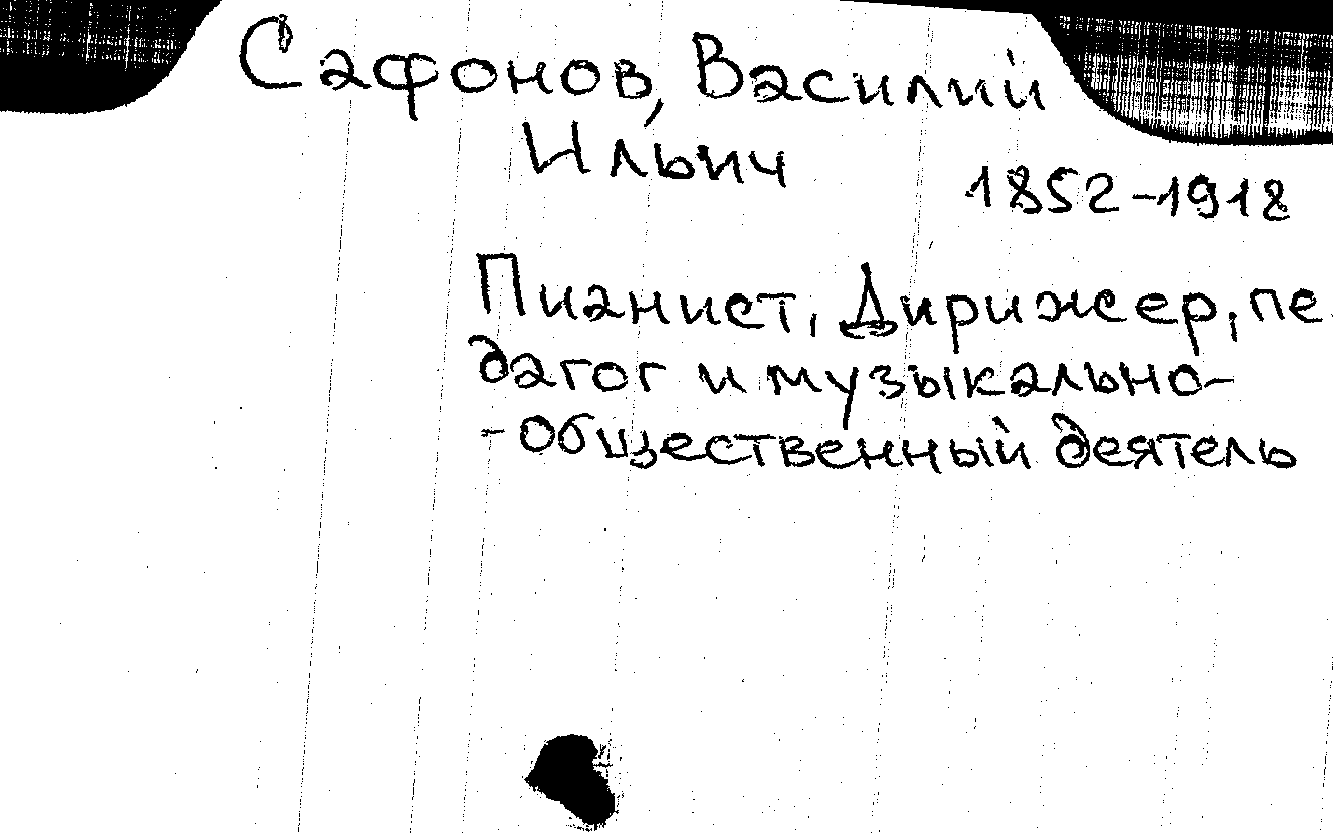 Сафонов, Василий
Ильич
1852-1918
Пианист, Дирижер, пе
дагог и музыкально-
-общественный деятель